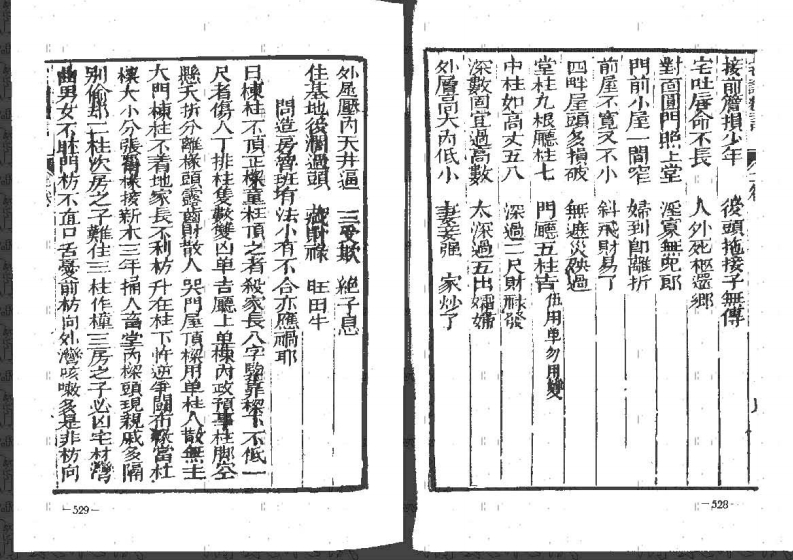 接前簷損少年　後頭拖接子無傳
宅吐唇命不長　人外死柩還鄉
對面圓門照上堂　淫寡無兜郎
門前小屋一間窄　婦到即離折
前屋不寬又不小　斜飛財易丁
四畔屋頭多損破　無遮災殃過
堂柱九根廳柱七　門廳五柱吉　用单勿用雙
中柱如高丈五八　深過二尺財祿發
深數固宜過高數　太深過五出孀
外層高大內低小　妻妾强　家炒了
—528—
外屋壓內天井逼　三受欺　絶子息
住基地後濶過頭　藏財祿　旺田牛
問造房魯班有法小有不合亦應禍耶
曰棟柱不頂正樑童柱頂之者殺家長八字靠樑下不低一
尺者傷人丁排柱隻數雙凶单吉廳上单棟內政預事柱脚空
懸天折分離椽頭露齒財散人哭門屋頂樑用单柱人散無主
大門棟柱不着地家長不利枋升在柱下忤逆爭鬪布當柱
櫈大小分張樑接新木三年損人畜堂內椽頭現親戚多隔
別偷却二柱次房之子難住三柱作樟三房之子必凶宅材灣
曲男女不門枋不直口舌憂前枋向外灣咳嗽多是非枋向
—529—